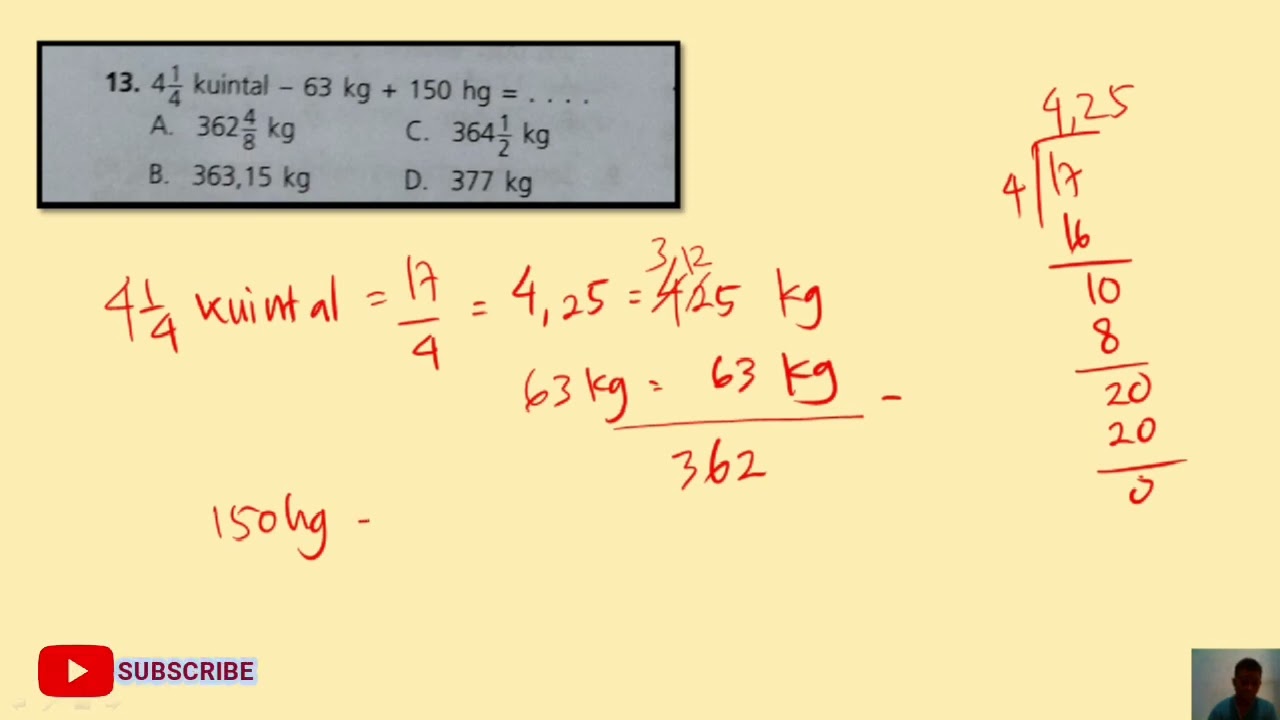 13. 4 1/4 kuintal – 63 kg + 150 hg = . . . .
A. 362 4/8 kg
C. 364 1/2 kg
B. 363,15 kg
D. 377 kg
4 1/4 kuintal = 17/4 = 4,25 = 425 kg
3,12
63 kg = 63 kg -
362
150 hg -
4,25
4 17
16
10
8
20
20
0
SUBSCRIBE